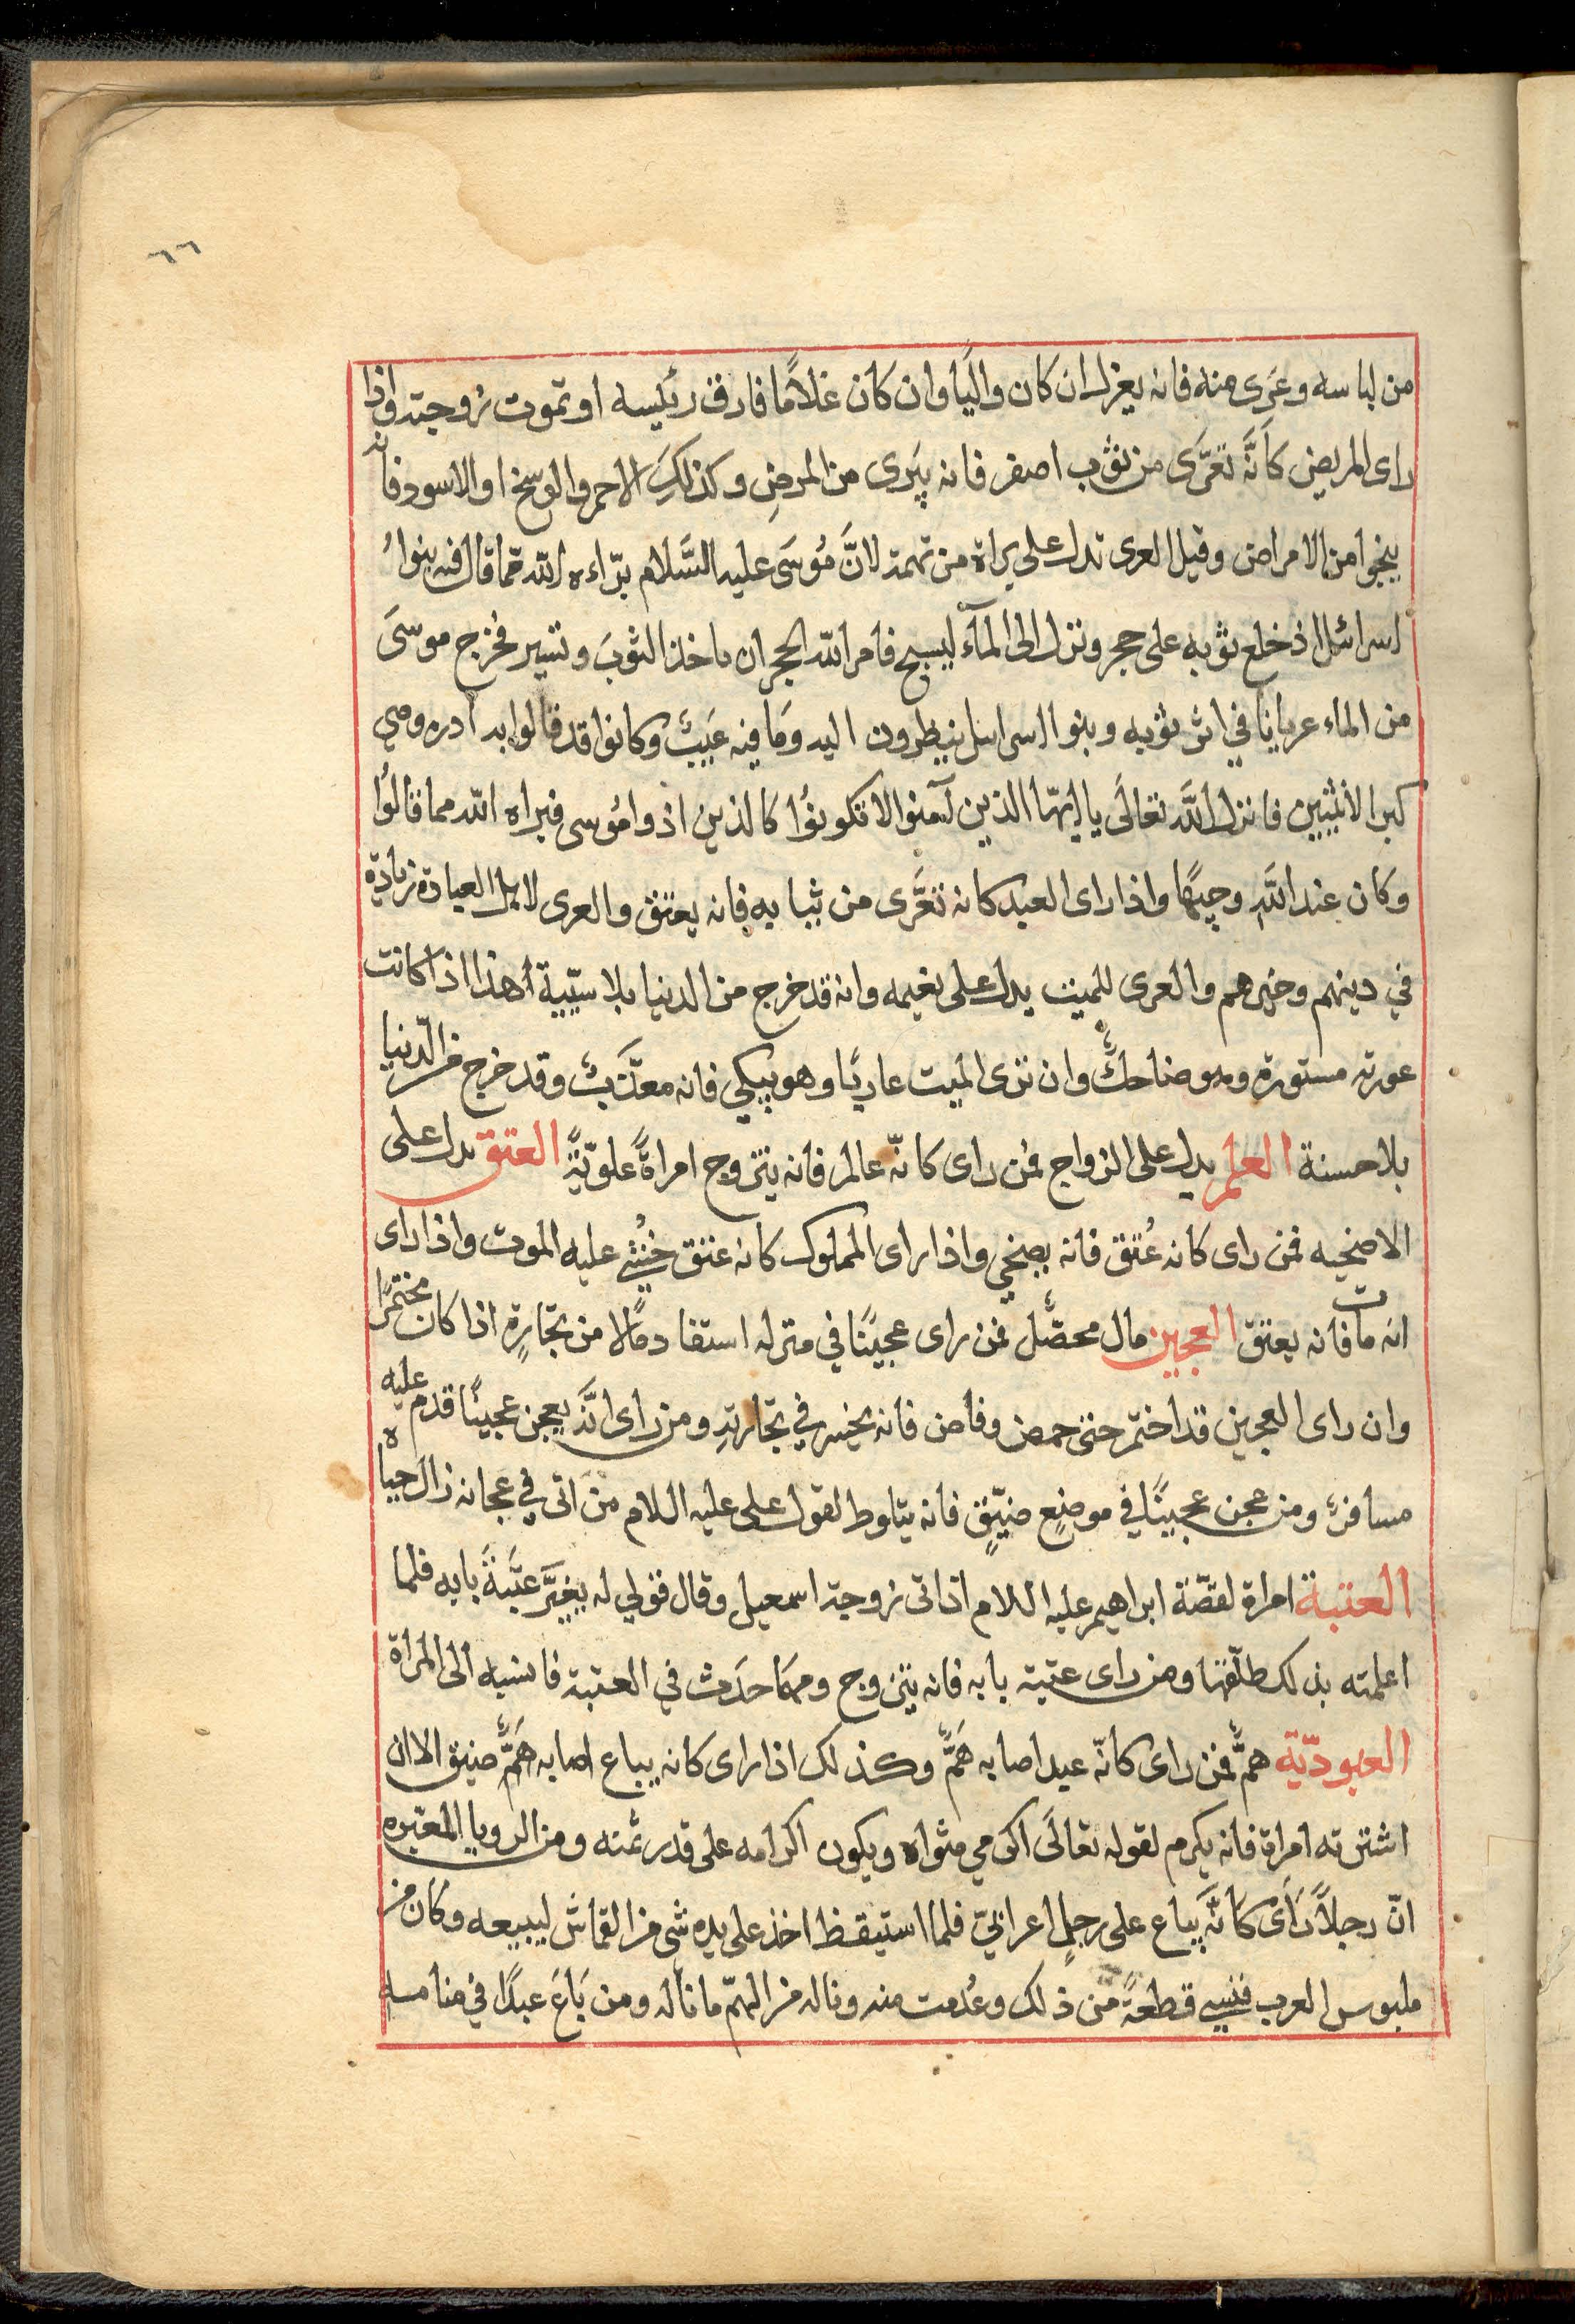 ٦٦
من لباسه وعَرى منه فانه يعزل ان كان واليًا وان كان غلامًا فارق رئيسه او تموت زوجته واذا
راى المريض كانَّه تعَرَّى من ثوب اصفر فانه يبرى من المرض وكذلك الاحمر والوسخ او الاسود فانه
ينجوا من الامراض وقيل العرى تدل على براة من تهمة لانَّ مُوسَى عليه السَّلام برّاءه الله مما قال فيه بنوا
اسرائل اذ خلع ثوبه على حجر ونزل الى المآء ليسبح فامر الله الحجر ان ياخذ الثوبَ وتسير فخرج موسىَ
من الماء عريانا في اثر ثوبه وبنو اسرائل ينظرون اليه وَمَا فيه عَيبٌ وكانوا قد قالوا به ادره وهي
كبر الأنثيين فانزل اللَّه تعالَى يا ايهّا الذين آمنوا لا تكونوُا كالذين اذوا مُوسى فبراه الله مما قالوُا
وكان عند اللَّه وجيهًا واذا راى العبد كانه تعَرَّى من ثيابه فانه يعتق والعرى لاهل العبادة زيادة
في دينهم وخيرهم والعرى للميت يدل على نعيمه وانه قد خرج من الدنيا بلا سيّئية هذا اذا كانت
عورته مستورة وهو ضاحكٌ وان نرى الميت عاريًا وهو يبكي فانه معذّبٌ وقد خرج من الدنيا
بلا حسنة العلم يدل على الزواج فمن راى كانّه عالم فانه يتزوج امراةً علويّةً العتق يدل على
الاضحيه فمن راى كانه عُتق فانه يضحي واذا راى المملوك كانه عتق خُشي عليه الموت واذا راى
انه مات فانه يعتق العجين مال محصَّل فمن راى عجينًا في منزله استفاد مالا من تجارةٍ اذا كان مختمرًا
وان راى العجين قد اختمر حتى حمض وفاض فانه يخسر في تجارتهِ ومن راى انَّه يعجن عجينًا قدم عليه
مسافرٌ ومن عجن عجينًا في موضعٍ ضيّقٍ فانه يتلوط لقول على عليه اللام من اتى في عجانه زال حياه
العتبة امراة لقصّة ابراهيم عليه اللام اذ اتى زوجة اسمعيل وقال قولي له يغيّر عتَبةَ بابه فلما
اعلمته بذلك طلّقها ومن راى عتبة بابه فانه يتزوج ومهمَا حدَث في العتبة فانسبه الى المراة
العبوديّة همٌّ فمن راى كانّه عبد اصابه هَمٌّ وكذلك اذا راى كانه يباع اصابه هَمٌّ وضيق الا ان
اشترته امراة فانه يكرم لقوله تعالَى اكرمي مثواه ويكون اكرامه على قدر ثمنه ومن الرويا المعتبره
انّ رجلاً رَأى كَانَّه يباع على رجلٍ اعرابيّ فلما استيقظ اخذ على يده شى من القماش ليبيعه وكان من
ملبوس العرب فنسي قطعةً من ذلك وعُدمت منه وناله من الهمّ ما ناله ومن بَاعَ عبدًا في منامه